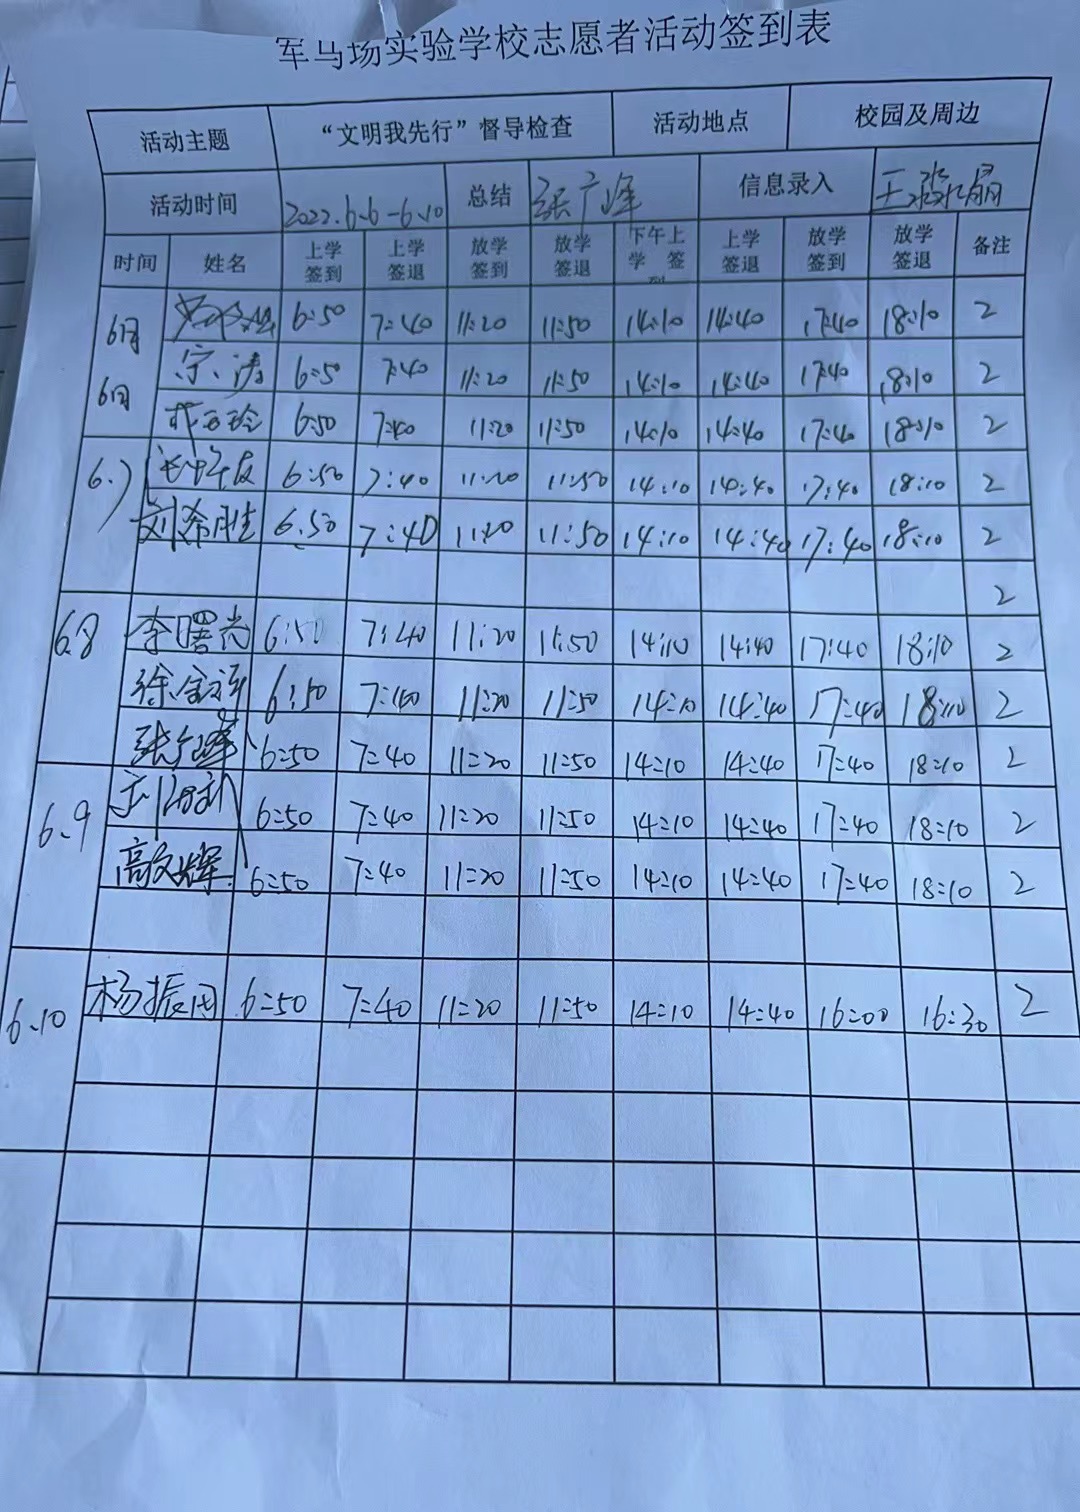 军马场实验学校志愿者活动签到表
活动主题 “文明我先行”督导检查 活动地点 校园及周边
活动时间 2022.6.6-6.10 总结 张广峰 信息录入
时间 姓名 上学签到 上学签退 放学签到 放学签退 下午上学 签到 上学签退 放学签到 放学签退 备注
6月 6:50 7:40 11:20 11:50 14:10 14:40 17:40 18:10 2
6日 宗涛 6:50 7:40 11:20 11:50 14:10 14:40 17:40 18:10 2
6:50 7:40 11:20 11:50 14:10 14:40 17:40 18:10 2
6.7 6:50 7:40 11:20 11:50 14:10 14:40 17:40 18:10 2
刘希胜 6:50 7:40 11:20 11:50 14:10 14:40 17:40 18:10 2
2
6.8 李曙光 6:50 7:40 11:20 11:50 14:10 14:40 17:40 18:10 2
徐金祥 6:50 7:40 11:20 11:50 14:10 14:40 17:40 18:10 2
张广峰 6:50 7:40 11:20 11:50 14:10 14:40 17:40 18:10 2
6.9 6:50 7:40 11:20 11:50 14:10 14:40 17:40 18:10 2
高文辉 6:50 7:40 11:20 11:50 14:10 14:40 17:40 18:10 2
6.10 杨振田 6:50 7:40 11:20 11:50 14:10 14:40 16:00 16:30 2